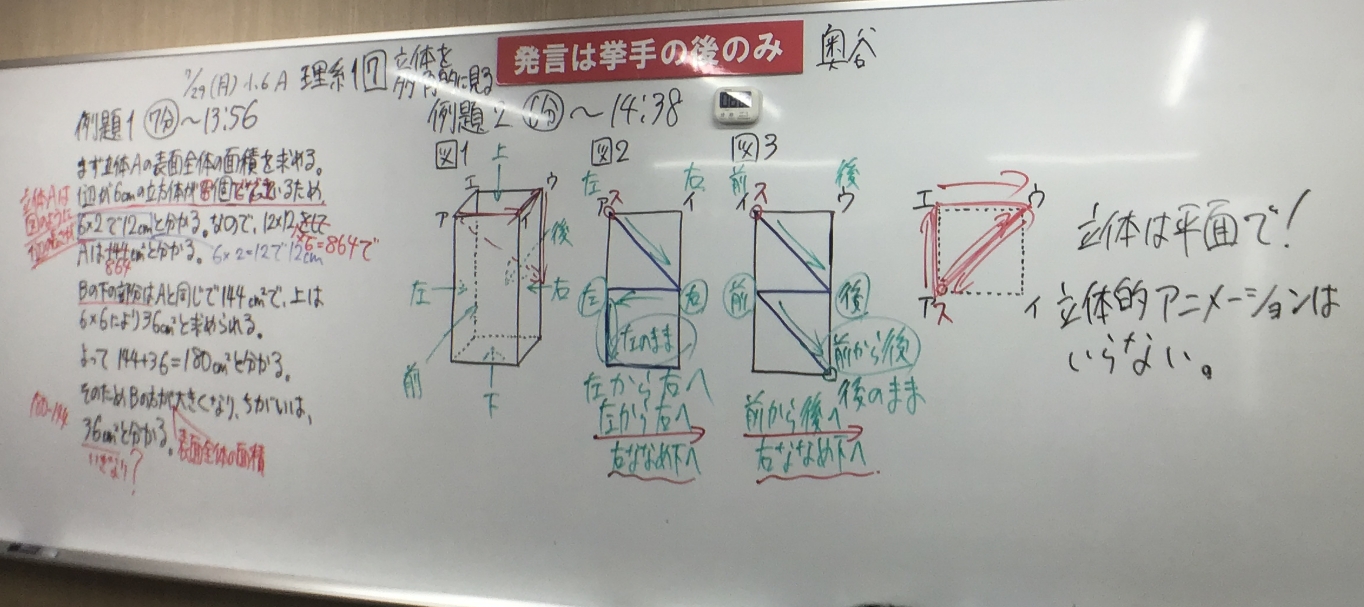 発言は挙手の後のみ
奥谷
7/29(月) 小6A 理系 1 立体を
的に見る
例題1 7分 〜13:56
まず立体Aの表面全体の面積を求める。
1辺が6cmの立方体が8個でできているため、
6×2で12cmと分かる。なので、12×12をして
×6=864で
Aは144cm²と分かる。 6×2=12で12cm
864
Bの下の部分はAと同じで144cm²で、上は
6×6たより36cm²と求められる。
よって144+36=180cm²と分かる。
そのためBの方が大きくなり、ちがいは、
36cm²と分かる。
表面全体の面積
いきなり?
立体Aは
図のように
180-144
例題2 6分 〜14:38
図1
上
エ
ウ
ア
イ
後
左
右
前
下
図2
左
右
アス
イ
左
右
左のまま
左から右へ
左から右へ
右ななめ下へ
図3
前
後
イス
ウ
前
後
前から後
後のまま
前から後へ
右ななめ下へ
エ
ウ
アス
イ
立体は平面で!
立体的アニメーションは
いらない。